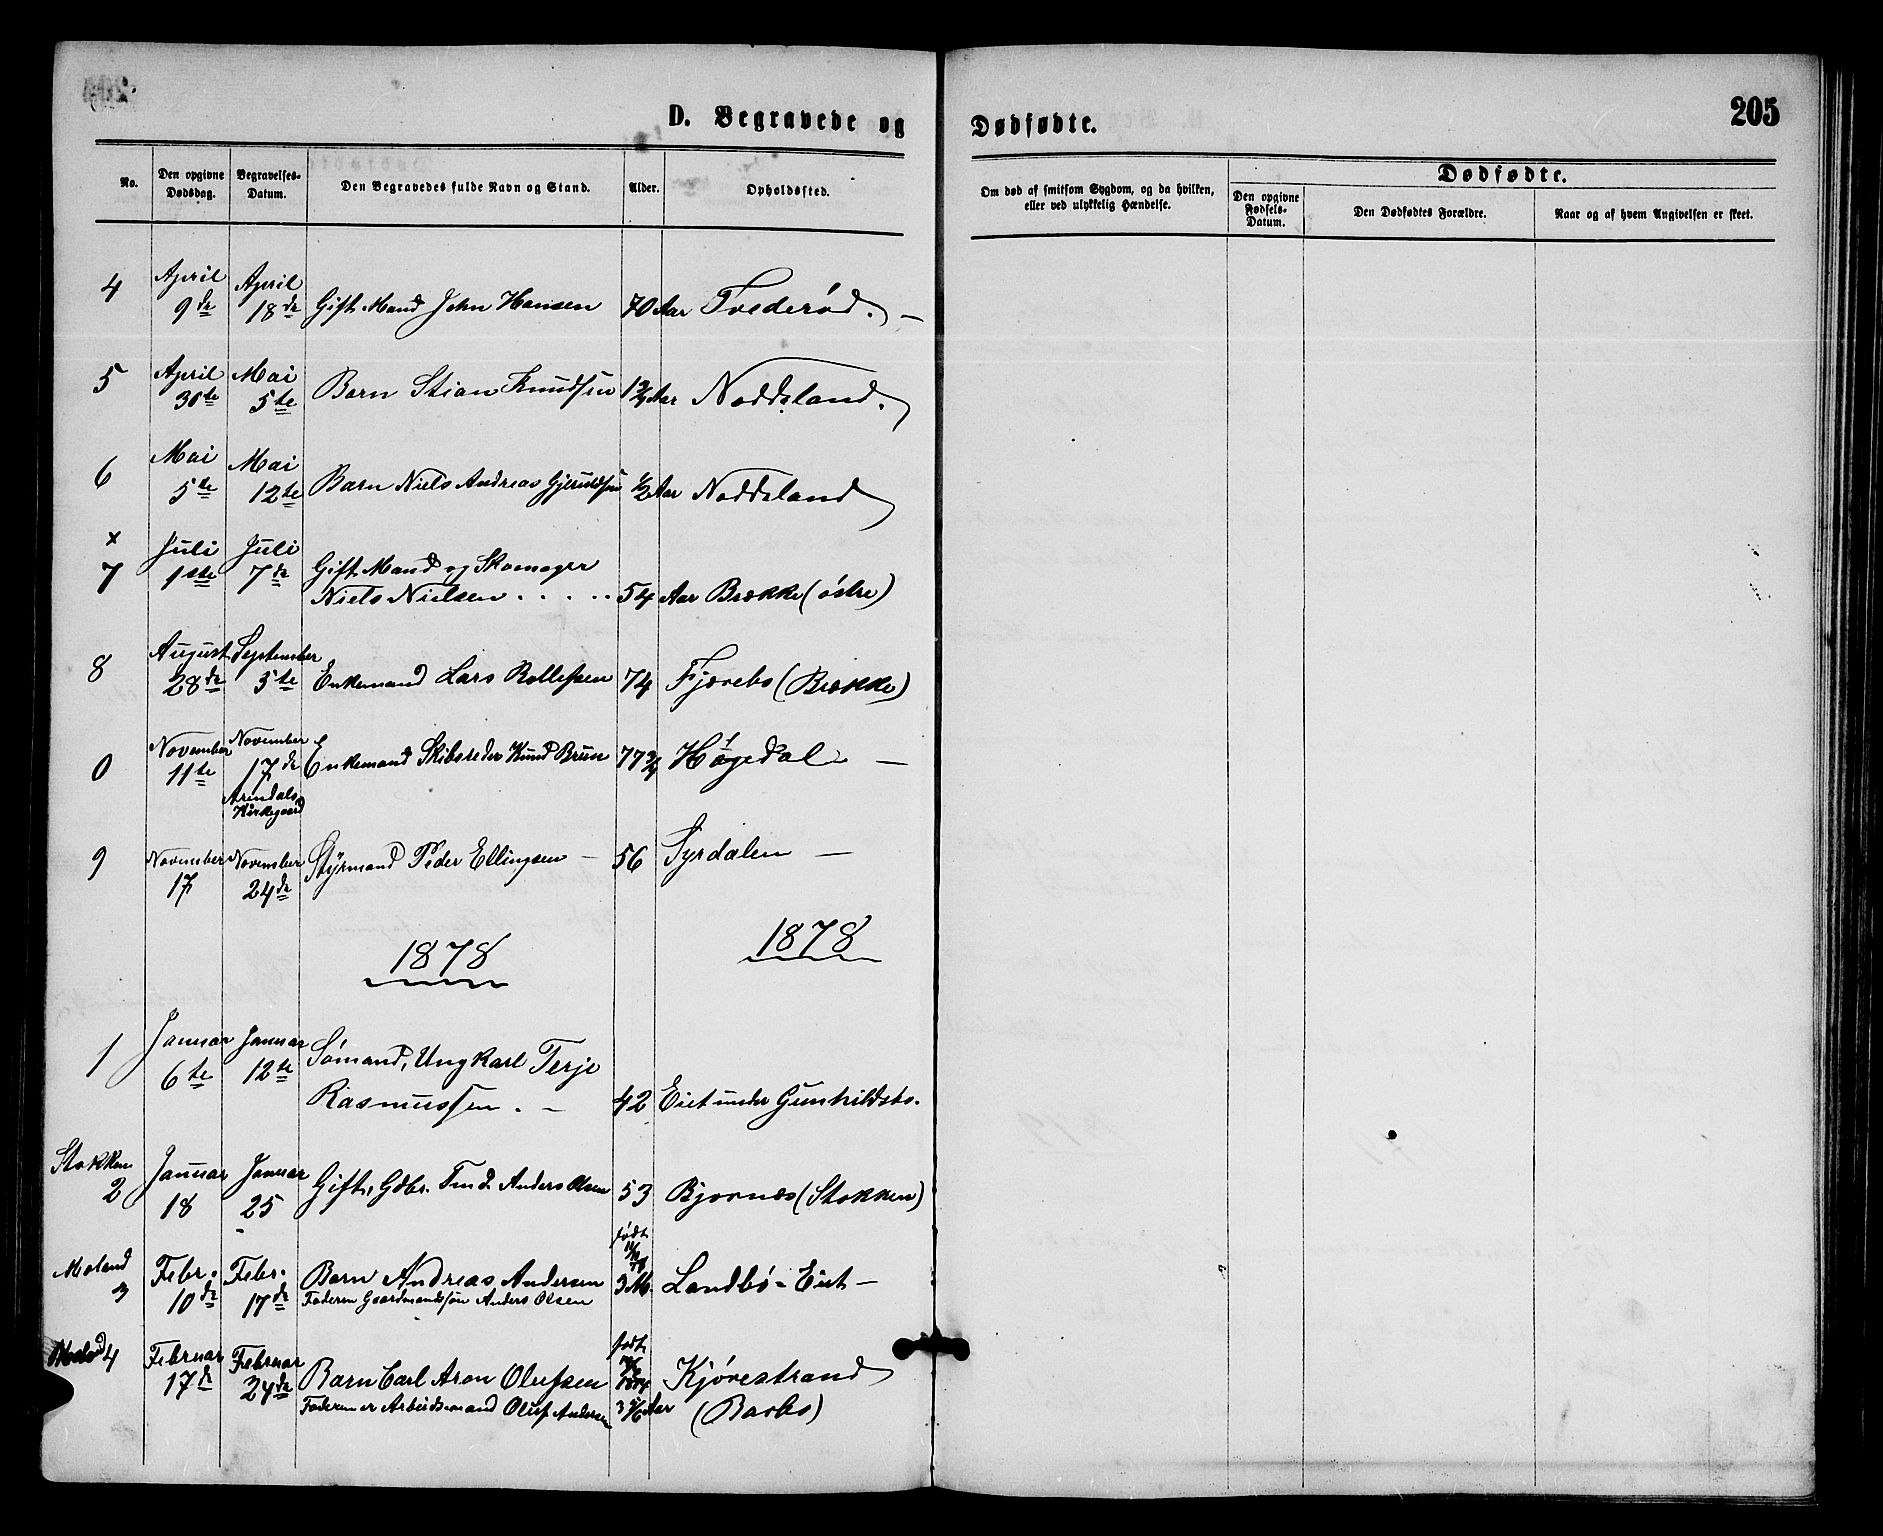 205
D. Begravede og Dødfødte.
No.
Den opgivne Dødsdag.
Begravelses-Datum.
Den Begravedes fulde Navn og Stand.
Alder.
Opholdssted.
Om død af smitsom Sygdom, og da hvilken, eller ved ulykkelig Hændelse.
Dødfødte.
Den opgivne Fødsels-Datum.
Den Dødfødtes Forældre.
Naar og af hvem Angivelsen er skeet.
4 April 9de April 18de Gift Mand John Hansen 70 Aar Tvederød. —
5 April 30te Mai 5te Barn Stian Knudsen 1 3/4 Aar Noddeland.
6 Mai 5te Mai 12te Barn Niels Andreas Gjeruldsen 1/2 Aar Noddeland
x
7 Juli 1ste Juli 7de Gift Mand og Skomager
Niels Nielsen . . . . . 54 Aar Brække (østre)
8 August 28de September 5te Enkemand Lars Rollefsen 74 Fjærebo (Brække)
0 November 11te November 17de Enkemand Skibsreder Knud Brun 77 3/4 Høgedal —
Arendals
Kirkegaard
9 November 17 November 24de Styrmand Peder Ellingsen — 56 Syrdalen —
1878 1878
1 Januar 6te Januar 12te Sømand, Ungkarl Terje
Rasmussen. — 42 Eiet under Gunhildsbo.
Stokken
2 Januar 18 Januar 25 Gift, Gdbr. Tmd. Anders Olsen 53 Bjornæs (Stokken)
Moland
3 Febr. 10de Febr. 17de Barn Andreas Andersen født 3 M. Landbø-Eiet —
Faderen Gaardmandssøn Anders Olsen
4 Februar 17de Februar 24de Barn Carl Aron Olufsen født 1874 Kjørestrand
Faderen er Arbeidsmand Oluf Andersen 3 5/6 Aar (Barbo)